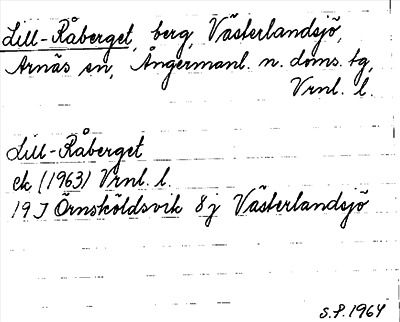 Lill-Råberget, berg, Västerlandsjö,
Arnäs sn, Ångermanl. n. doms. tg,
Vrnl. l.
Lill-Råberget
ek (1963) Vrnl. l.
19 J Örnsköldsvik 8 j Västerlandsjö
S.P. 1964